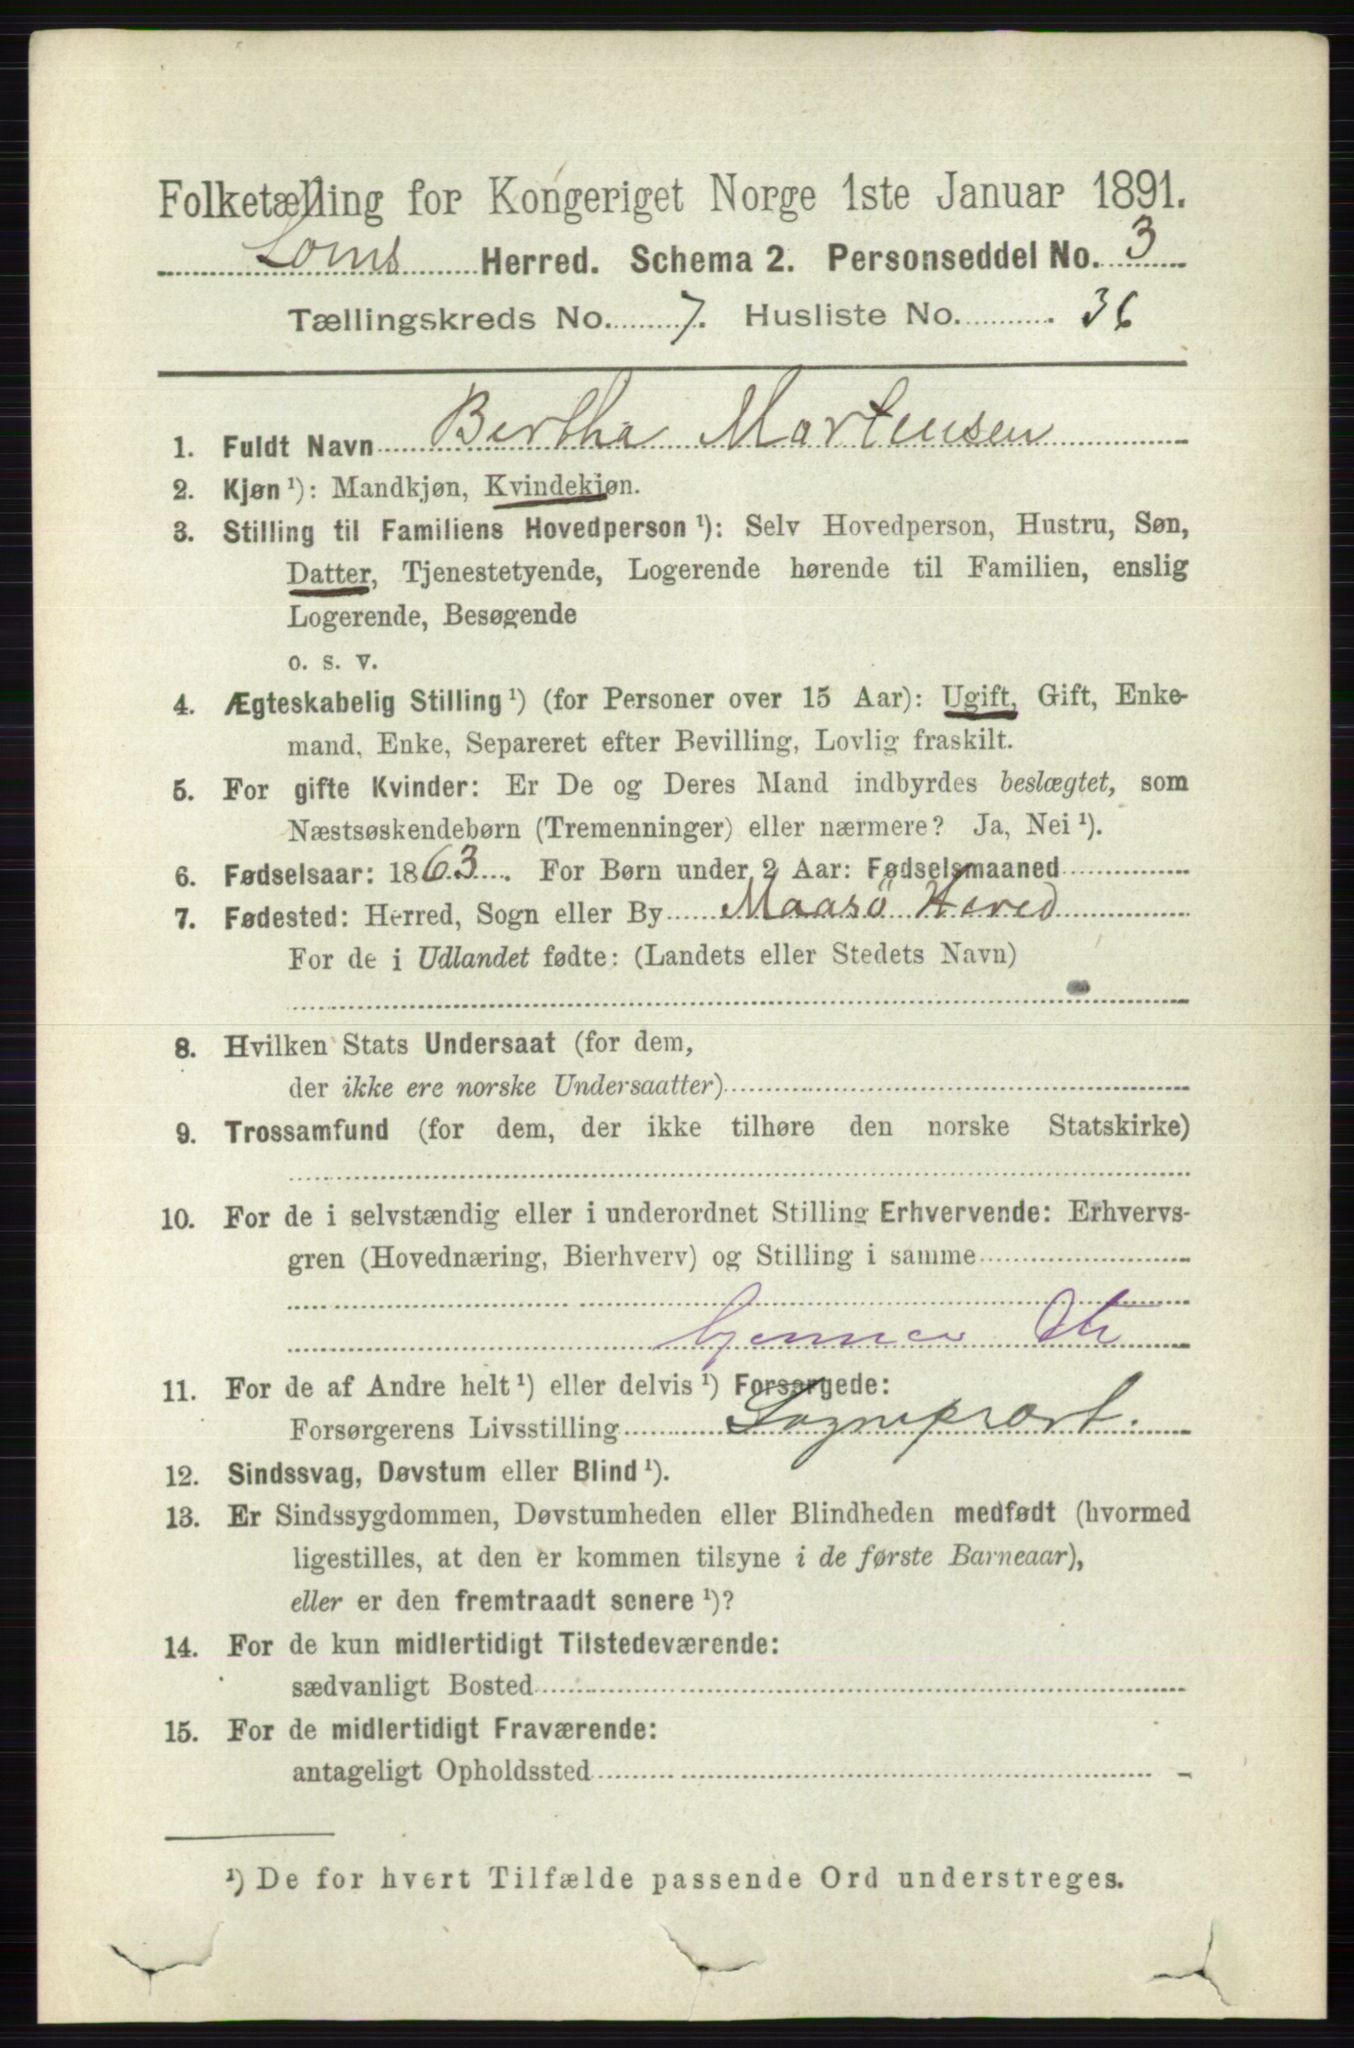 Folketælling for Kongeriget Norge 1ste Januar 1891.
Loms Herred. Schema 2. Personseddel No. 3
Tællingskreds No. 7. Husliste No. 36
1. Fuldt Navn Bertha Martensen
2. Kjøn ¹): Mandkjøn, Kvindekjøn.
3. Stilling til Familiens Hovedperson ¹): Selv Hovedperson, Hustru, Søn,
Datter, Tjenestetyende, Logerende hørende til Familien, enslig
Logerende, Besøgende
o. s. v.
4. Ægteskabelig Stilling ¹) (for Personer over 15 Aar): Ugift, Gift, Enke-
mand, Enke, Separeret efter Bevilling, Lovlig fraskilt.
5. For gifte Kvinder: Er De og Deres Mand indbyrdes beslægtet, som
Næstsøskendebørn (Tremenninger) eller nærmere? Ja, Nei ¹).
6. Fødselsaar: 1863. For Børn under 2 Aar: Fødselsmaaned
7. Fødested: Herred, Sogn eller By Maasö Hered
For de i Udlandet fødte: (Landets eller Stedets Navn)
8. Hvilken Stats Undersaat (for dem,
der ikke ere norske Undersaatter)
9. Trossamfund (for dem, der ikke tilhøre den norske Statskirke)
10. For de i selvstændig eller i underordnet Stilling Erhvervende: Erhvervs-
gren (Hovednæring, Bierhverv) og Stilling i samme
11. For de af Andre helt ¹) eller delvis ¹) Forsørgede:
Forsørgerens Livsstilling Sognepræst.
12. Sindssvag, Døvstum eller Blind ¹).
13. Er Sindssygdommen, Døvstumheden eller Blindheden medfødt (hvormed
ligestilles, at den er kommen tilsyne i de første Barneaar),
eller er den fremtraadt senere ¹)?
14. For de kun midlertidigt Tilstedeværende:
sædvanligt Bosted
15. For de midlertidigt Fraværende:
antageligt Opholdssted
¹) De for hvert Tilfælde passende Ord understreges.